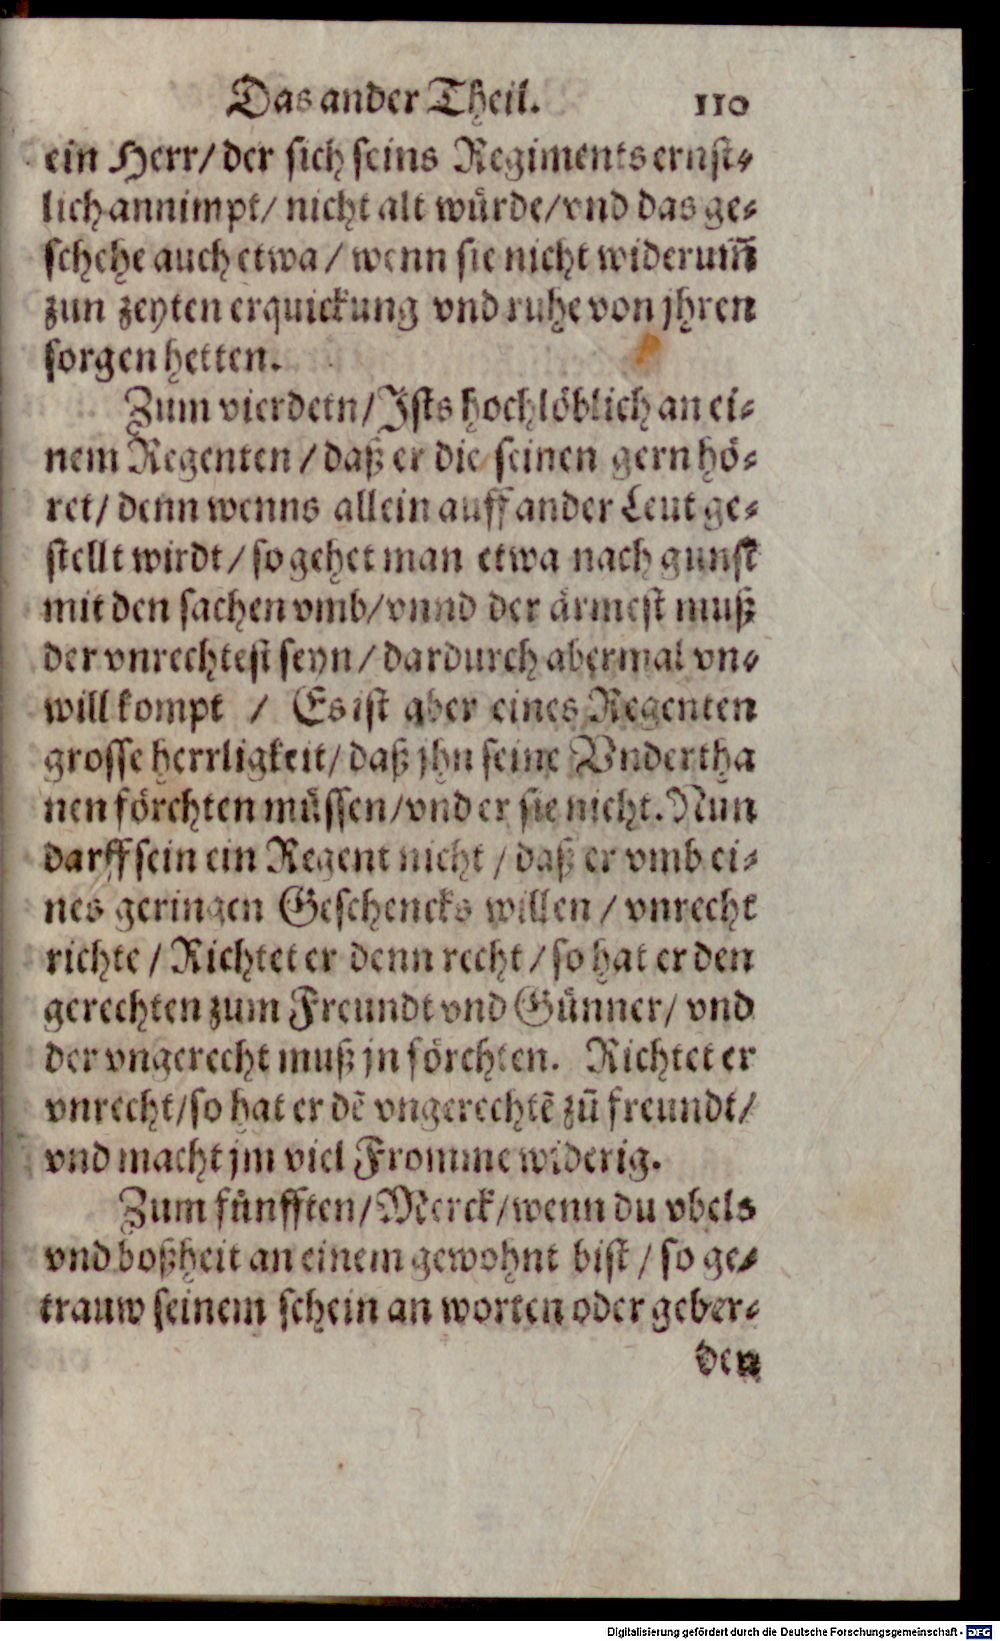 Das ander Theil. 110
ein Herr/ der sich seins Regiments ernst⸗
lich annimpt/ nicht alt würde/ vnd das ge⸗
schehe auch etwa / wenn sie nicht widerum̃
zun zeyten erquickung vnd ruhe von jhren
sorgen hetten.
Zum vierdetn/ Ists hochlöblich an ei⸗
nem Regenten / daß er die seinen gern hö⸗
ret/ denn wenns allein auff ander Leut ge⸗
stellt wirdt / so gehet man etwa nach gunst
mit den sachen vmb/ vnnd der ärmest muß
der vnrechtest seyn / dardurch abermal vn⸗
will kompt / Es ist aber eines Regenten
grosse herrligkeit/ daß jhn seine Vndertha
nen förchten müssen/ vnd er sie nicht. Nun
darff sein ein Regent nicht / daß er vmb ei⸗
nes geringen Geschencks willen / vnrecht
richte / Richtet er denn recht / so hat er den
gerechten zum Freundt vnd Günner/ vnd
der vngerecht muß jn förchten. Richtet er
vnrecht/ so hat er dẽ vngerechtẽ zũ freundt/
vnd macht jm viel Fromme widerig.
Zum fünfften/ Merck/ wenn du vbels
vnd boßheit an einem gewohnt bist / so ge⸗
trauw seinem schein an worten oder geber⸗
den
Digitalisierung gefördert durch die Deutsche Forschungsgemeinschaft - DFG